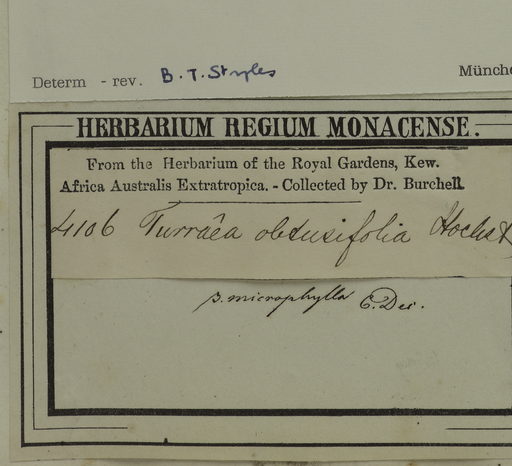 Determ - rev. B. T. Styles
Münche
HERBARIUM REGIUM MONACENSE.
From the Herbarium of the Royal Gardens, Kew.
Africa Australis Extratropica. - Collected by Dr. Burchell.
4106 Turræa obtusifolia Hochst
β. microphylla C. Dec.